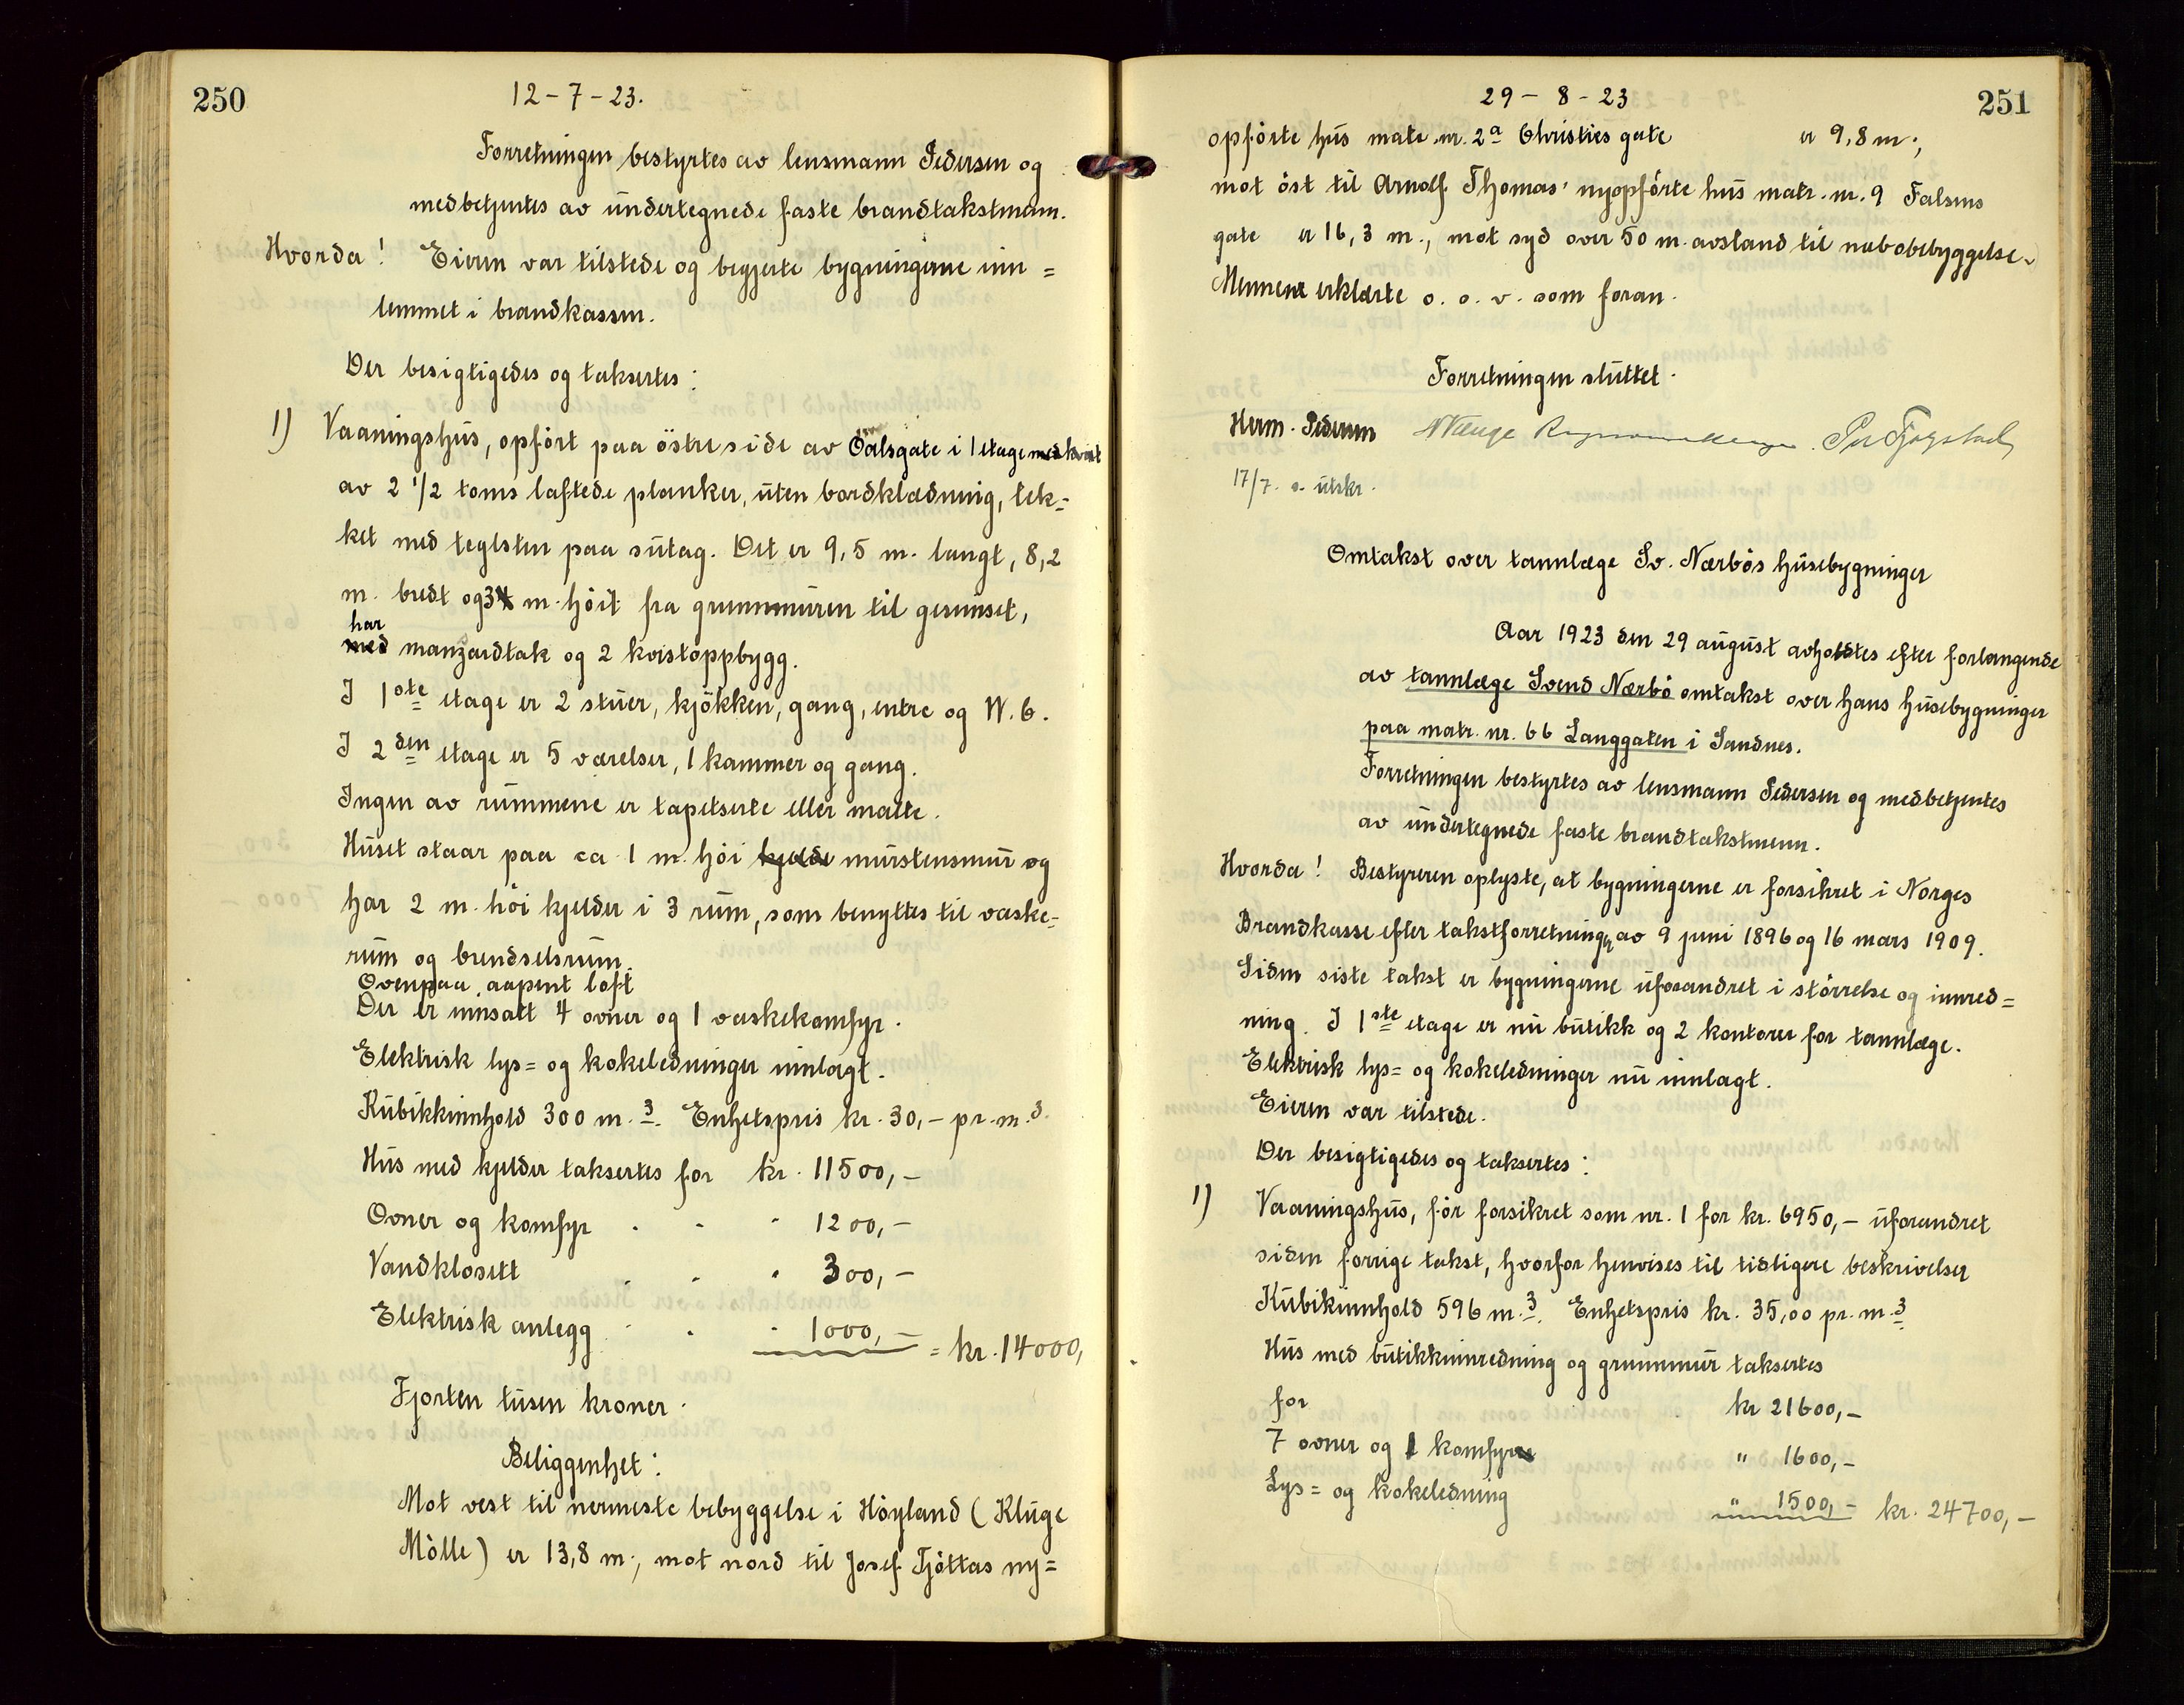 250
12-7-23.
Forretningen bestyrtes av lensmann Pedersen og
medbetjentes av undertegnede faste brandtakstmenn.
Hvorda! Eieren var tilstede og begjerte bygningerne inn=
lemmet i brandkassen.
Der besigtigedes og taksertes:
1) Vaaningshus, opfört paa östre side av Öalsgate i 1 etage med kvist
av 2 1/2 toms laftede planker, uten bordklædning, tek=
ket med teglsten paa sutag. Det er 9,5 m. langt, 8,2
m. bredt og 3 m. höit fra grunnmuren til gesimset,
har
med manzardtak og 2 kvistoppbygg.
I 1ste etage er 2 stuer, kjökken, gang, entre og W.C.
I 2den etage er 5 værelser, 1 kammer og gang.
Ingen av rummene er tapetserte eller malte.
Huset staar paa ca 1 m. höi kjelde murstensmur og
har 2 m. höi kjelder i 3 rum, som benyttes til vaske=
rum og brendselsrum.
Ovenpaa aapent loft
Der er innsatt 4 ovner og 1 vaskekomfyr.
Elektrisk lys= og kokeledninger innlagt.
Kubikkinnhold 300 m.3. Enhetspris kr. 30,- pr. m.3.
Hus med kjelder taksertes for kr. 11500,-
Ovner og komfyr . . " 1200,-
Vandklosett . . " 300,-
Elektrisk anlegg . . " 1000,- = kr. 14000,
Fjorten tusen kroner.
Beliggenhet:
Mot vest til nermeste bebyggelse i Höyland (Kluge
Mölle) er 13,8 m., mot nord til Josef Tjöttas ny=
29-8-23
251
opförte hus matr. nr. 2a Christies gate er 9,8 m.,
mot öst til Arnolf Thomas' nyopförte hus matr. nr. 9 Falsens
gate er 16,3 m., mot syd over 50 m. avstand til nabobebyggelse.
Mennene erklærte o. s. v. som foran.
Forretningen sluttet.
Herm. Pedersen
17/7. s. utskr.
Omtakst over tannlæge Sv. Nærbös husebygninger
Aar 1923 den 29 august avholdtes efter forlangende
av tannlæge Svend Nærbö omtakst over hans husebygninger
paa matr. nr. 66 Langgaten i Sandnes.
Forretningen bestyrtes av lensmann Pedersen og medbetjentes
av undertegnede faste brandtakstmenn.
Hvorda! Bestyreren oplyste, at bygningerne er forsikret i Norges
Brandkasse efter takstforretninger av 9 juni 1896 og 16 mars 1909.
Siden siste takst er bygningerne uforandret i störrelse og innred=
ning. I 1ste etage er nu butikk og 2 kontorer for tannlæge.
Elektrisk lys= og kokeledninger nu innlagt.
Eieren var tilstede.
Der besigtigedes og taksertes:
1) Vaaningshus, för forsikret som nr. 1 for kr. 6950,- uforandret
siden forrige takst, hvorfor henvises til tidligere beskrivelser
Kubikinnhold 596 m.3. Enhetspris kr. 35,00 pr. m.3.
Hus med butikkinnredning og grunnmur taksertes
for kr 21600,-
7 ovner og 1 komfyr " 1600,-
Lys= og kokeledning " 1500,- kr. 24700,-